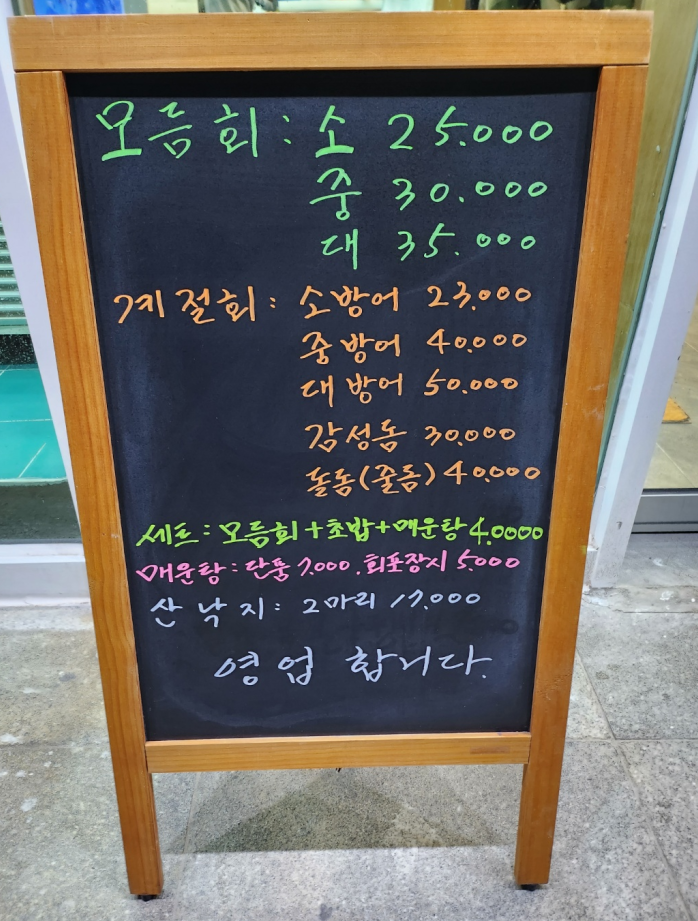 모듬회 : 소 25.000
중 30.000
대 35.000
계절회 : 소방어 23.000
중방어 40.000
대방어 50.000
감성돔 30.000
돌돔(줄돔) 40.000
세트 : 모듬회+초밥+매운탕 4.0000
매운탕 : 단품 7.000. 회포장시 5.000
산낙지 : 2마리 17.000
영업 합니다.